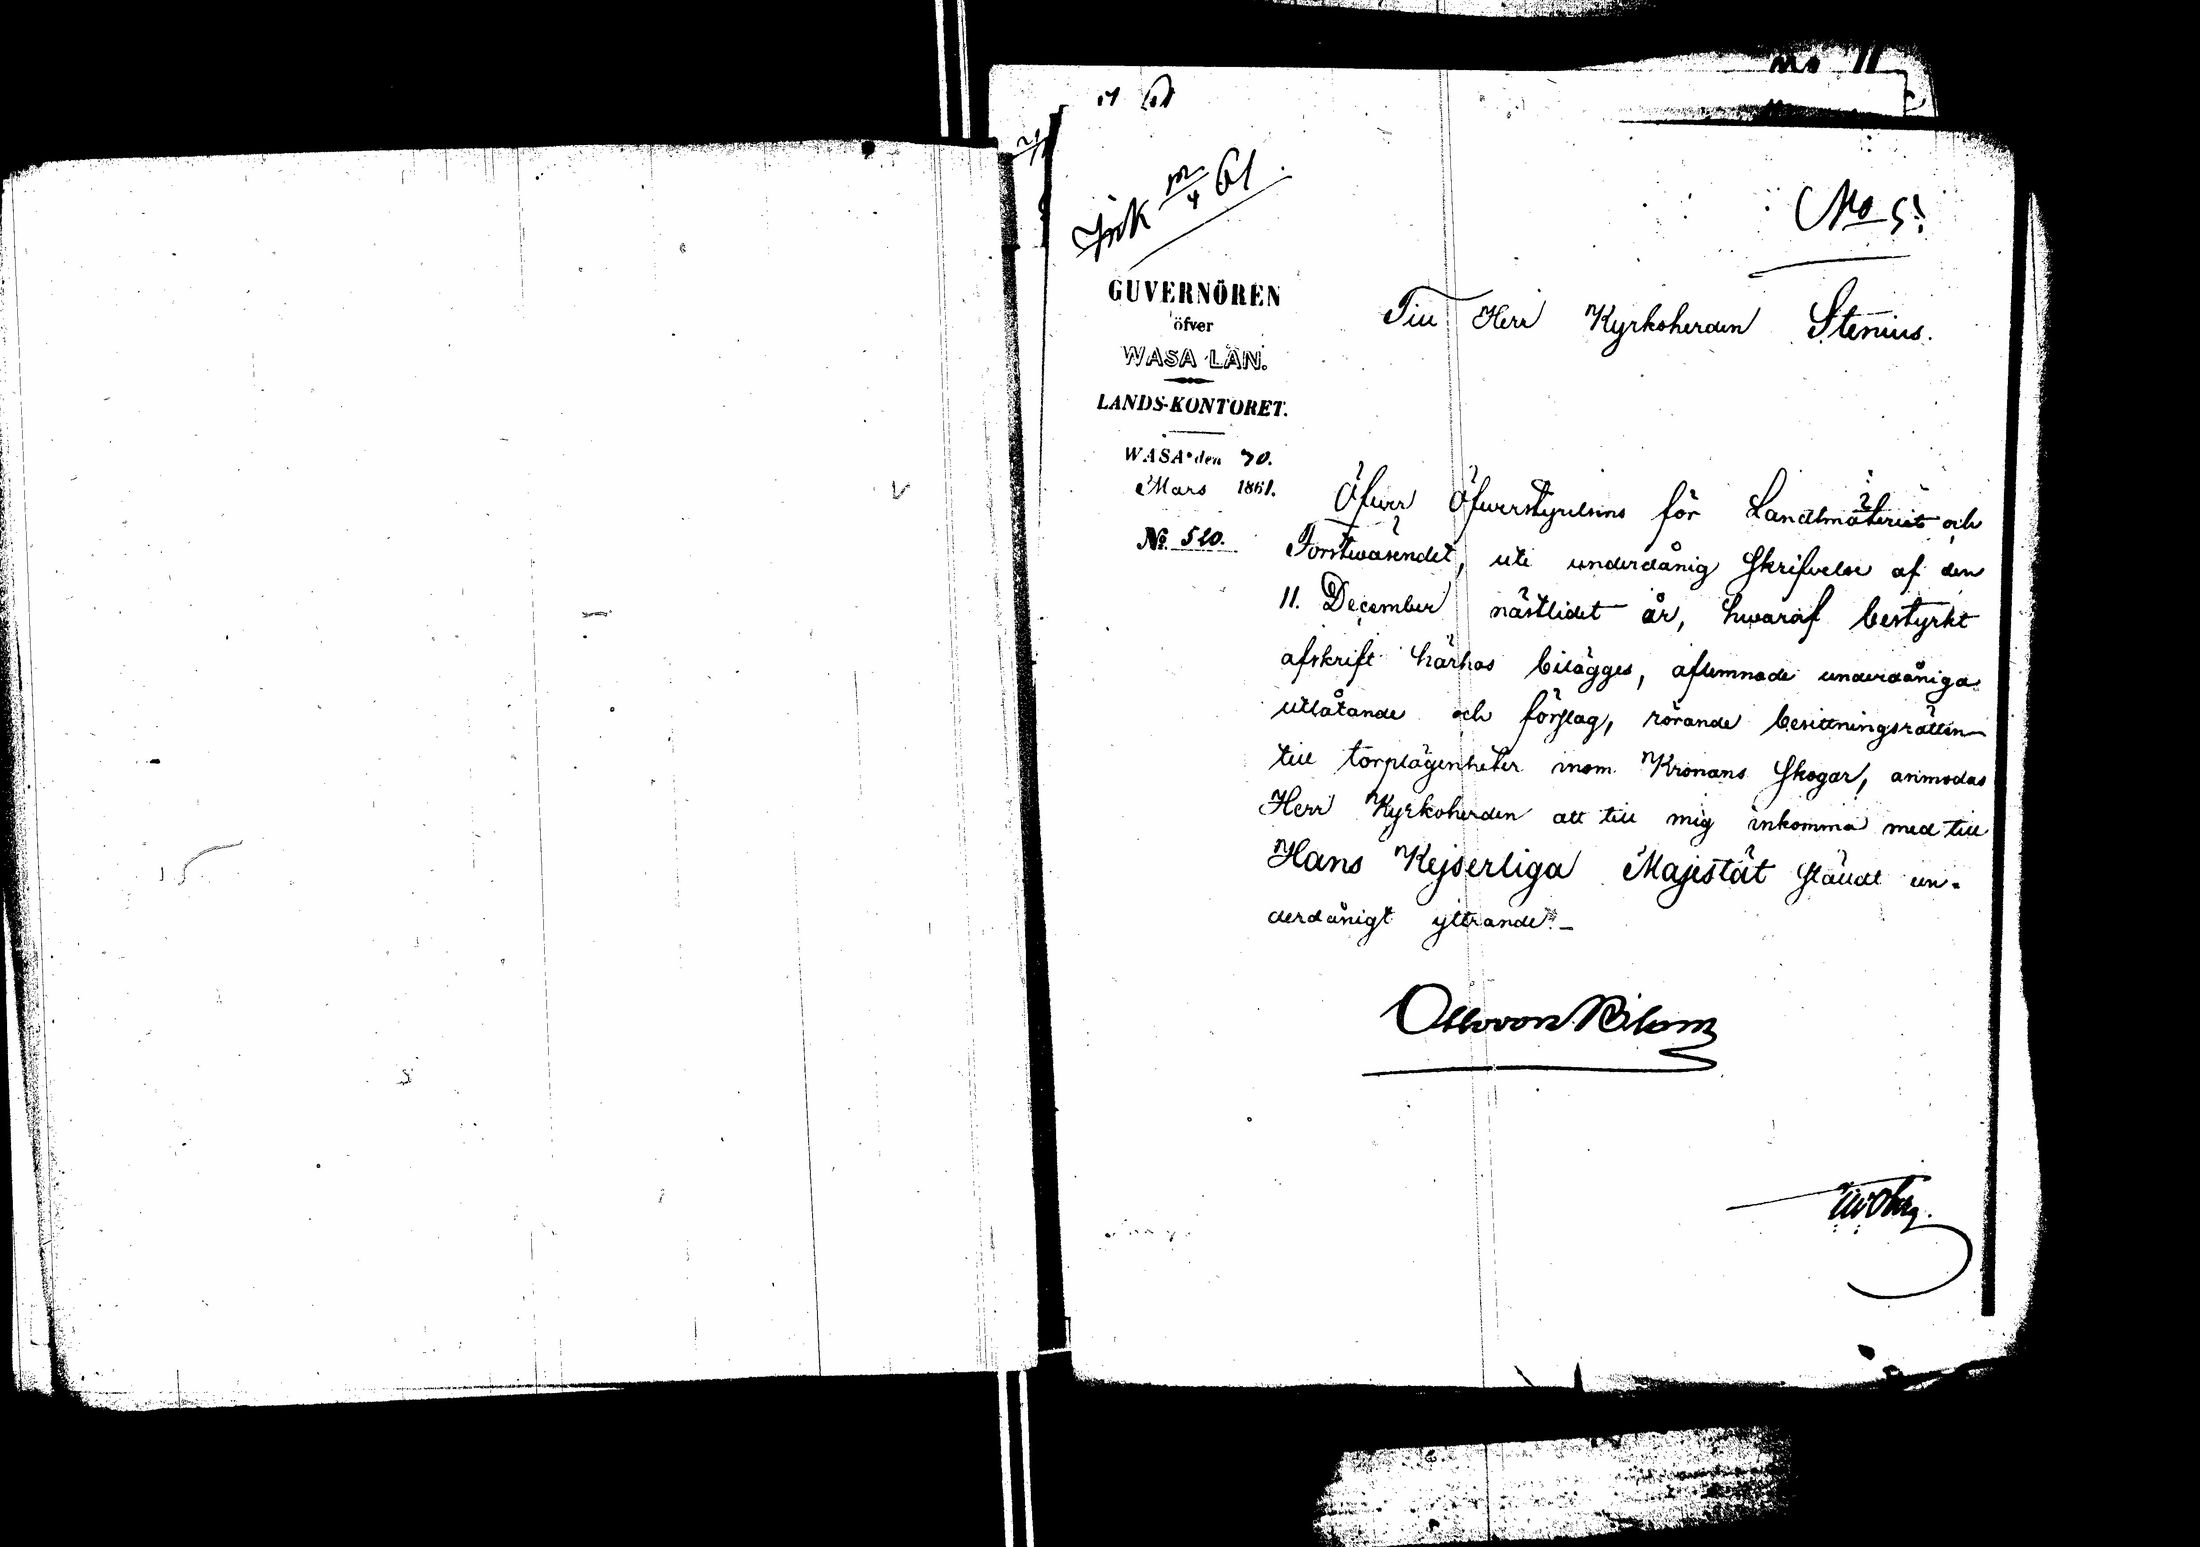 Ink 12/4 61.
No 5
GUVERNÖREN
öfver
WASA LÄN.
LANDS-KONTORET.
WASA den 30.
Mars 1861.
No. 520.
Till Herr Kyrkoherden Stenius.
Öfver Öfverstyrelsens för Landtmäteriet och
Forstwäsendet, uti underdånig skrifvelse af den
11. December nästlidet år, hwaraf bestyrkt
afskrift härhos bilägges, aflemnade underdåniga
utlåtande och förslag, rörande besittningsrätten
till torplägenheter inom Kronans skogar, anmodas
Herr Kyrkoherden att till mig inkomma med till
Hans Kejserliga Majestät stäldt un-
derdånigt yttrande.
Otto von Blom